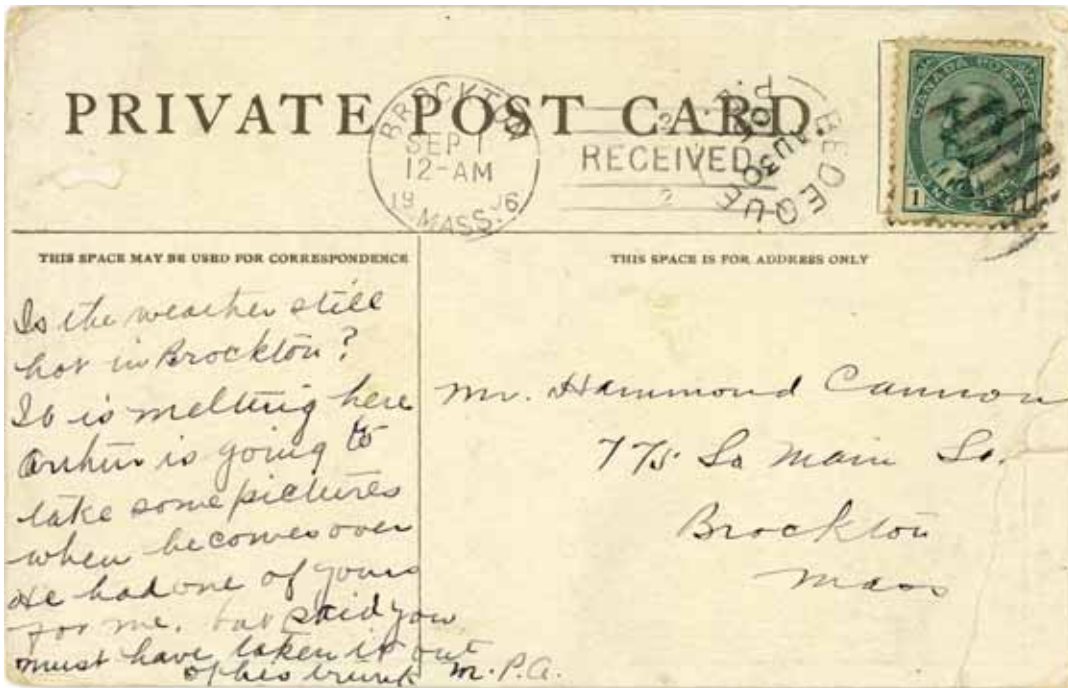 PRIVATE POST CARD.
BROCKTON
SEP 1
12-AM
19 06
MASS.
RECEIVED
BEDEQUE
AU 30
CANADA POSTAGE
1 ONE CENT 1
THIS SPACE MAY BE USED FOR CORRESPONDENCE
Is the weather still
hot in Brockton?
It is melting here
Arthur is going to
take some pictures
when he comes over
He had one of yours
for me. but said you
must have taken it out
of his trunk
M.P.A.
THIS SPACE IS FOR ADDRESS ONLY
Mr. Hammond Cannon
775 So Main St.
Brockton
Mass